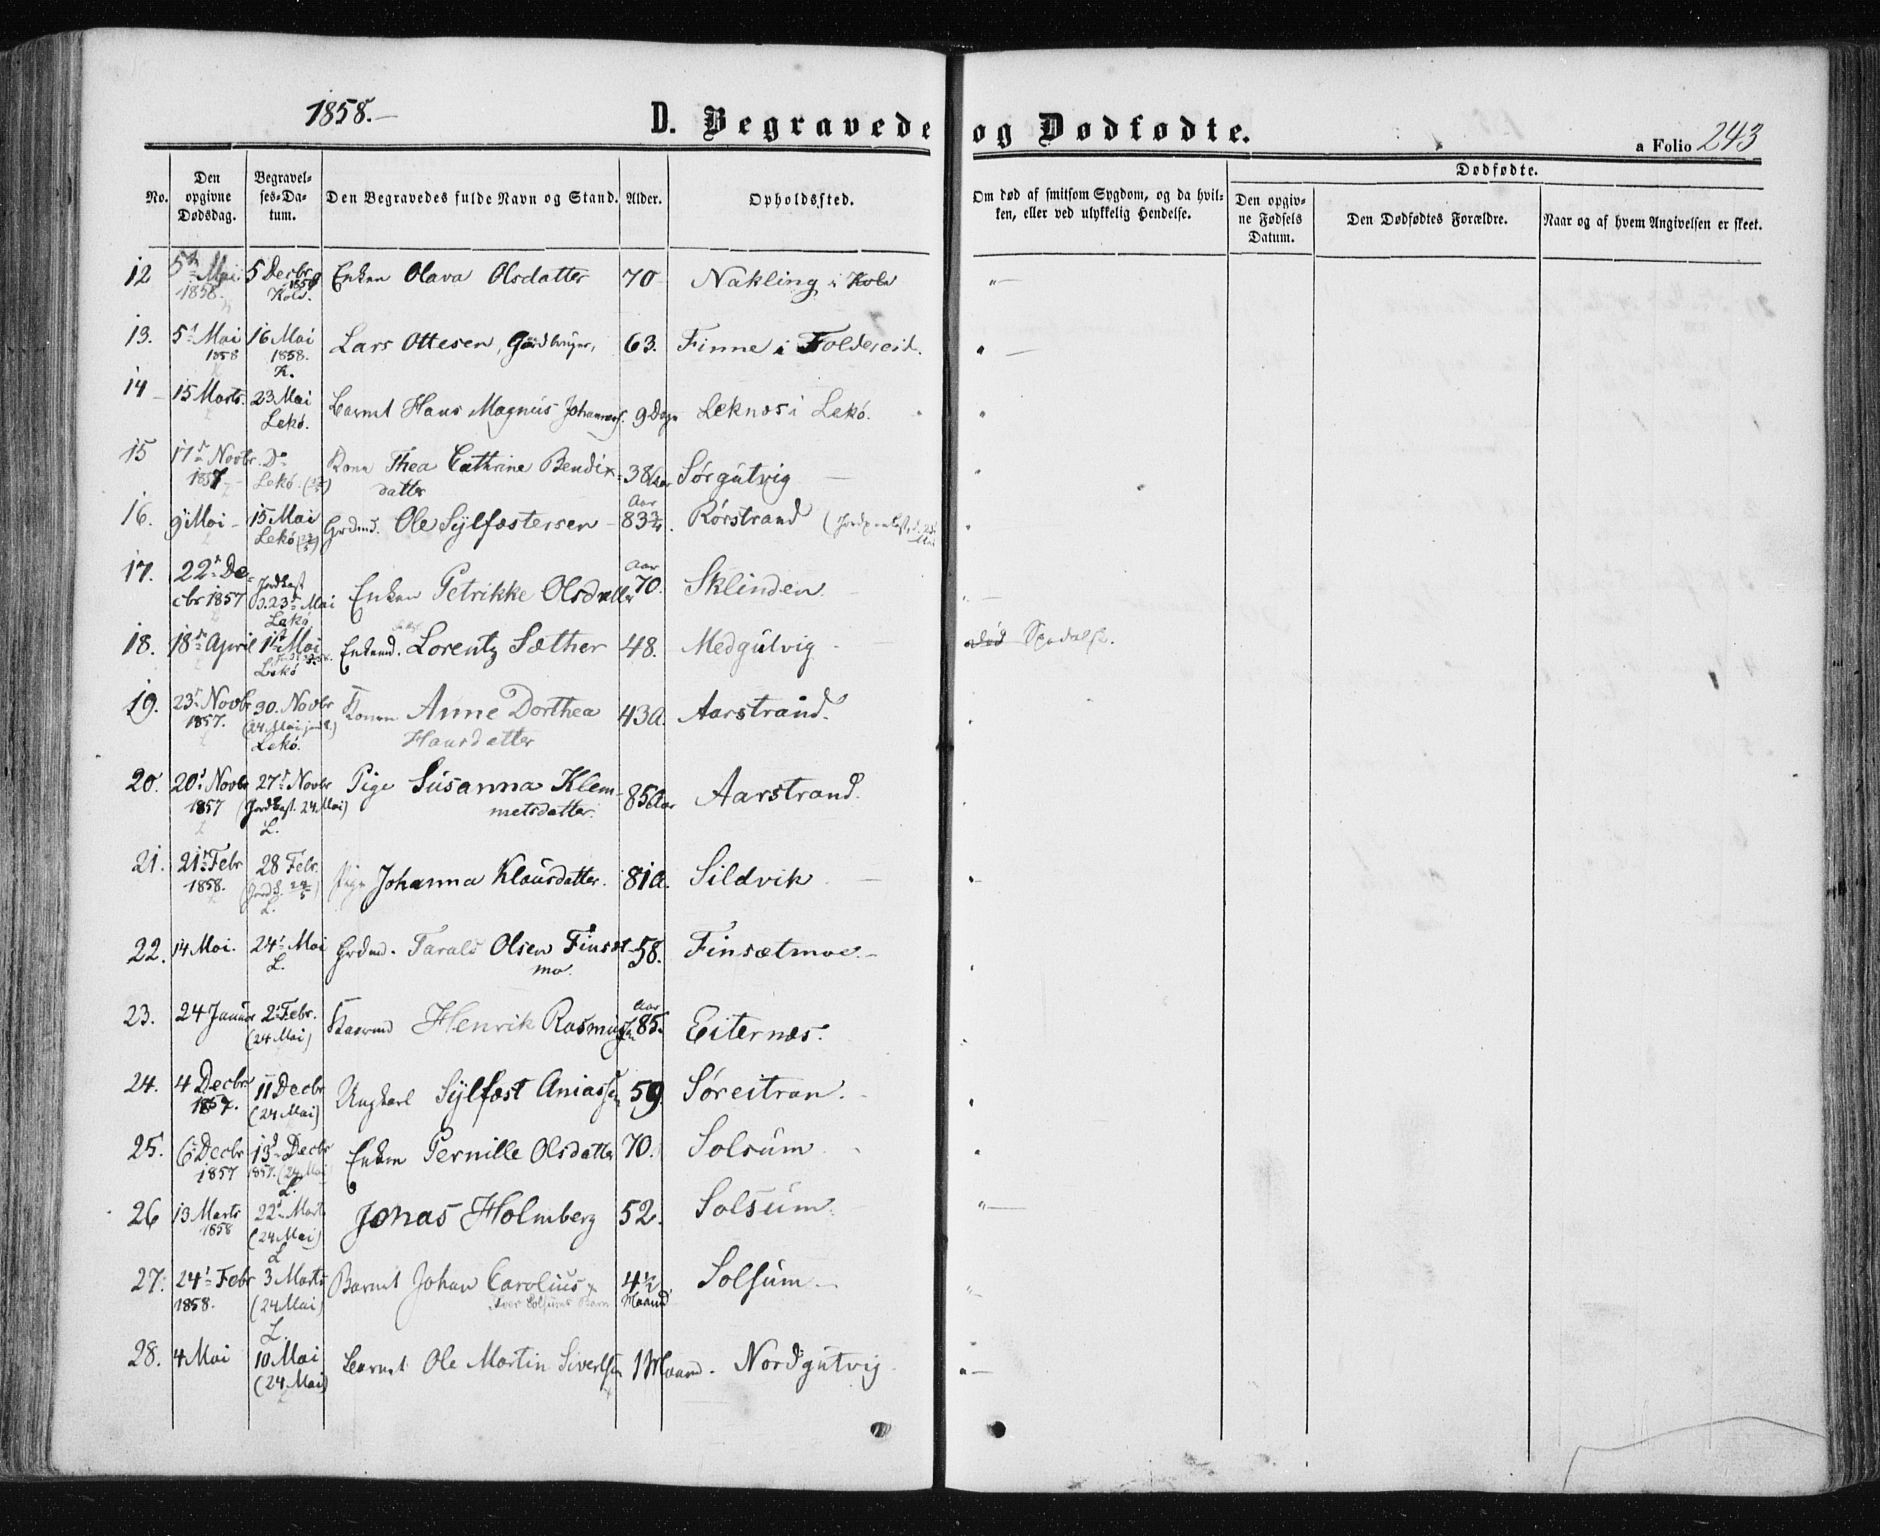 1858.—
D. Begravede og Dødfødte.
a Folio 243
No.
Den opgivne Dødsdag.
Begravelses-Datum.
Den Begravedes fulde Navn og Stand.
Alder.
Opholdssted.
Om død af smitsom Sygdom, og da hvilken, eller ved ulykkelig Hendelse.
Dødfødte.
Den opgivne Fødsels Datum.
Den Dødfødtes Forældre.
Naar og af hvem Angivelsen er skeet.
12 Mai 1858. 5 Decbr Kolv. Enken Olava Olsdatter 70 Nakling i Kolv "—
13. 5t Mai 1858 16 Mai 1858. K. Lars Ottesen, Gårdbruger, 63. Finne i Foldereid. "—
14 15 Marts. 23 Mai Lekø. Barnet Hans Magnus Johannes. 9 Dage Leknæs i Lekø. "
15 17de Novbr 1857 Do Lekø. Kone Thea Cathrine Bendixdatter 38 Aar Sørgutvig — "
16. 9 Mai — 15 Mai Lekø Grdmd. Ole Sylfæstersen 83¾ Aar Rørstrand "
17. 22de Decbr 1857 Jordkast d. 23de Mai Lekø Enken Petrikke Olsdatter 70. Aar Sklinden. "—
18. 18de April 1st Mai Lekø Enkemd. Lorentz Sæther 48. Medgutvig død Spedalsk.
19. 23de Novbr 1857. 30. Novbr (24 Mai) Lekø. Konen Anne Dorthea Hansdatter 43 A. Aarstrand. "
20. 20de Novbr 1857 27de Novbr (Jordkast. 24 Mai) L. Pige Susanna Klemmetsdatter. 85 Aar Aarstrand.
21. 21de Febr 1858. 28 Febr. L. Pige Johanna Klausdatter. 81 A. Sildvik — "
22. 14 Mai. 24de Mai L. Grdmd. Tarald Olsen Finsætmo. 58. Finsætmoe.— "
23. 24 Januar 2 Febr. (24 Mai) Henrik Rasmussen 85. Aar Eiternæs. "
24. 4 Decbr 1857. 11 Decbr (24 Mai) Ungkarl Sylfæst Aniassen 59 Søreitran. "
25. 6 Decbr 1857 13de Decbr 1857. (24 Mai) L. Enken Pernille Olsdatter 70. Solsum "
26 13 Marts 1858 22de Marts (24 Mai) L Jonas Holmberg 52. Solsum. "—
27. 24de Febr 1858. 3 Marts (24 Mai) L. Barnet Johan Carolius Solsums Barn 4½ Maaned Solsum — "
28. 4 Mai 10 Mai (24 Mai) L Barnet Ole Martin Sivertsen 1 Maaned. Nordgutvig "—